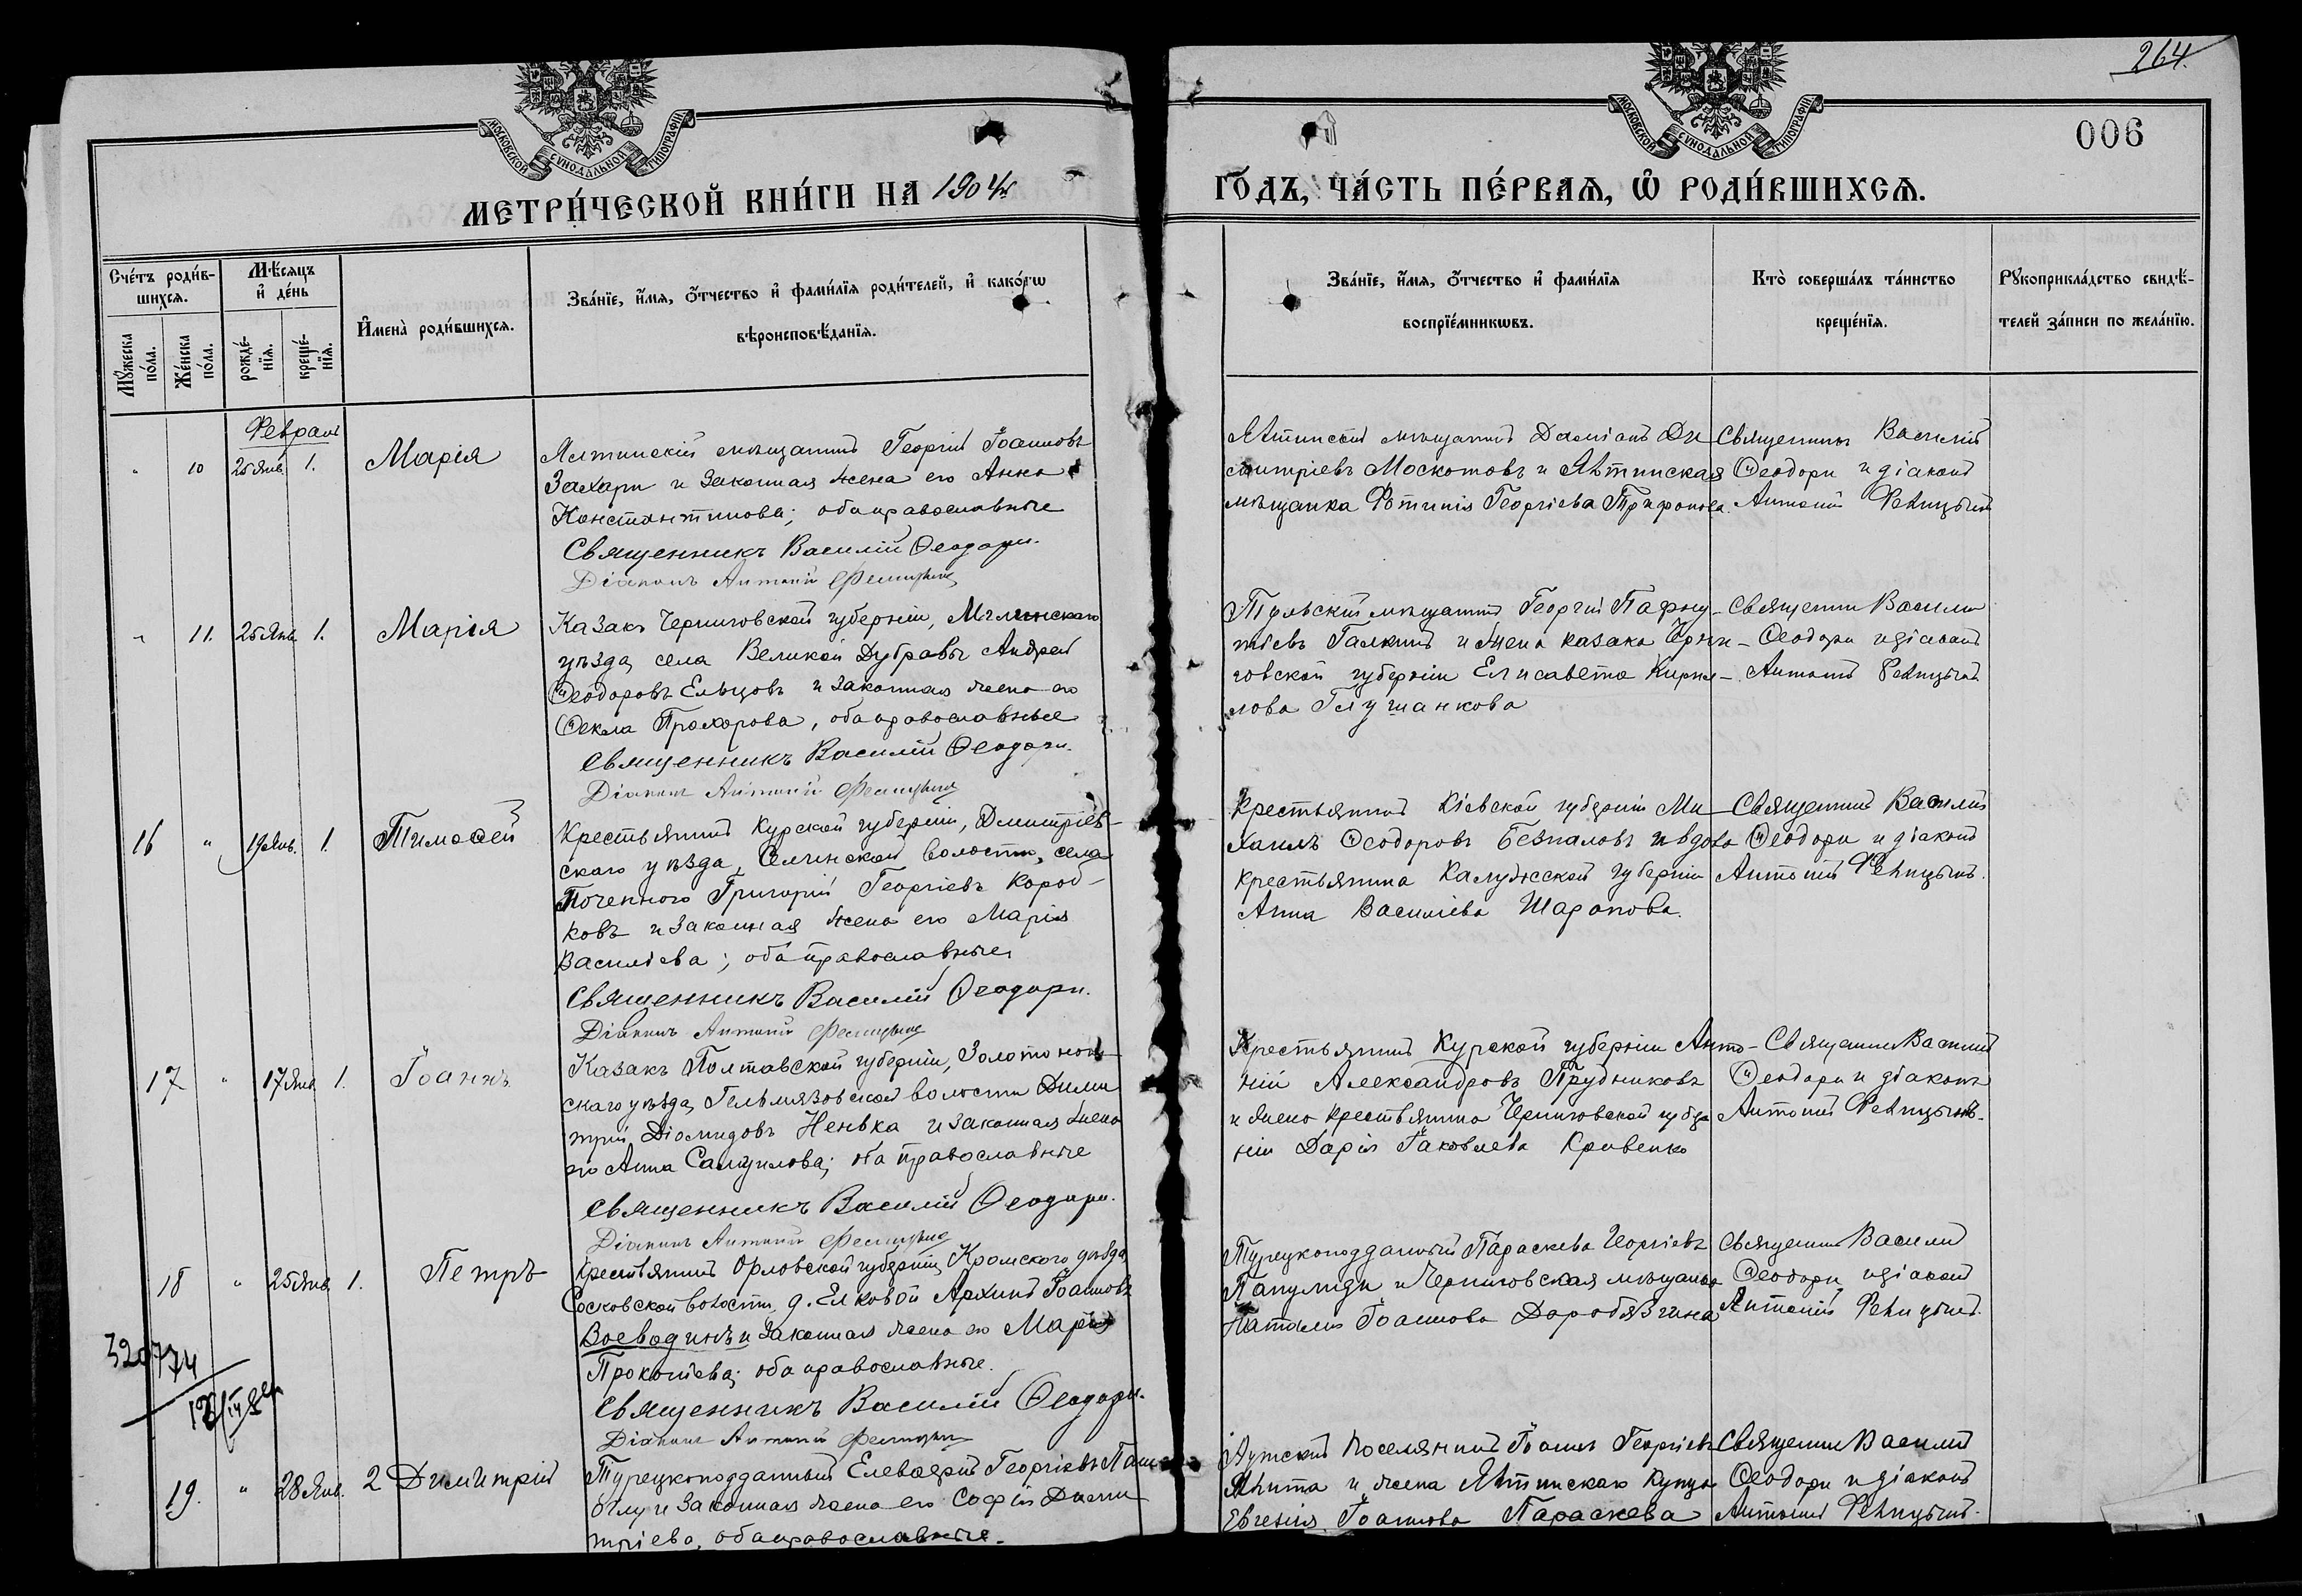 264.
006
МОСКОВСКОЙ СѴНОДАЛЬНОЙ ТИПОГРАФІИ
МОСКОВСКОЙ СѴНОДАЛЬНОЙ ТИПОГРАФІИ
МЕТРИ́ЧЕСКОЙ КНИ́ГИ НА 1904й
ГО́ДЪ, ЧА́СТЬ ПЕ́РВАѦ, Ѡ҆ РОДИ́ВШИХСѦ.
Сче́тъ роди́в-
шихсѧ.
Мꙋ́жеска по́ла.
Же́нска по́ла.
Мѣ́сѧцъ
и҆ де́нь
рожде́-
нїѧ.
креще́-
нїѧ.
И҆мена̀ роди́вшихсѧ.
Зва́нїе, и҆́мѧ, ѻ҆́тчество и҆ фами́лїѧ роди́телей, и҆ како́гѡ
вѣроисповѣ́данїѧ.
Зва́нїе, и҆́мѧ, ѻ҆́тчество и҆ фами́лїѧ
воспрїе́мникѡвъ.
Кто̀ соверша́лъ та́инство
креще́нїѧ.
Рꙋкоприкла́дство свидѣ́-
телей за́писи по жела́нїю.
Февраль
" 10 25 Янв. 1. Марія
Ялтинскій мѣщанинъ Георгій Іоанновъ
Захари и законная жена его Анна
Константинова; оба православные
Священникъ Василій Ѳеодори.
Діаконъ Антоній
Ялтинскій мѣщанинъ Даміанъ Ди-
митріевъ Москотовъ и Ялтинская
мѣщанка Фотинія Георгіева Трифонова.
Священникъ Василій
Ѳеодори и діаконъ
Антоній
" 11. 25 Янв. 1. Марія
Казакъ Черниговской губерніи, Мглинскаго
уѣзда, села Великой Дубравы Андрей
Ѳеодоровъ Ельцовъ и законная жена его
Ѳекла Прохорова, оба православные
Священникъ Василій Ѳеодори.
Діаконъ Антоній
Тульскій мѣщанинъ Георгій Пафну-
тіевъ Галкинъ и жена казака Черни-
говской губерніи Елисавета Кирил-
лова Глушанкова
Священникъ Василій
Ѳеодори и діаконъ
Антоній
16 " 19 Янв. 1. Тимоѳей
Крестьянинъ Курской губерніи, Дмитріев-
скаго уѣзда, Селинской волости, села
Почепного Григорій Георгіевъ Короб-
ковъ и законная жена его Марія
Василіева; оба православные
Священникъ Василій Ѳеодори.
Діаконъ Антоній
Крестьянинъ Кіевской губерніи Ми-
хаилъ Ѳеодоровъ Безпаловъ и вдова
крестьянина Калужской губерніи
Анна Василіева Шарапова.
Священникъ Василій
Ѳеодори и діаконъ
Антоній
17 " 17 Янв. 1. Іоаннъ
Казакъ Полтавской губерніи, Золотонош-
скаго уѣзда, Гельмязовской волости Дими-
трій Діомидовъ Ненька и законная жена
его Анна Самуилова; оба православные
Священникъ Василій Ѳеодори.
Діаконъ Антоній
Крестьянинъ Курской губерніи Анто-
ній Александровъ Прудниковъ
и жена крестьянина Черниговской губер-
ніи Дарія Іаковлева Кривенко
Священникъ Василій
Ѳеодори и діаконъ
Антоній
18 " 25 Янв. 1. Петръ
Крестьянинъ Орловской губерніи, Кромского уѣзда,
Сосковской волости, д. Елковой Архипъ Іоанновъ
Воеводинъ и законная жена его Марія
Прокопіева; оба православные.
Священникъ Василій Ѳеодори.
Діаконъ Антоній
Турецкоподданный Параскева Георгіевъ
Папулиди и Черниговская мѣщанка
Наталія Іоаннова Доробязгина
Священникъ Василій
Ѳеодори и діаконъ
Антоній
320774
19. " 28 Янв. 2 Димитрій
Турецкоподданный Елевѳерій Георгіевъ
и законная жена его Софія Дими-
тріева, оба православные.
Аутскій поселянинъ Іоаннъ Георгіевъ
и жена Ялтинскаго купца
Евгенія Іоаннова Параскева
Священникъ Василій
Ѳеодори и діаконъ
Антоній